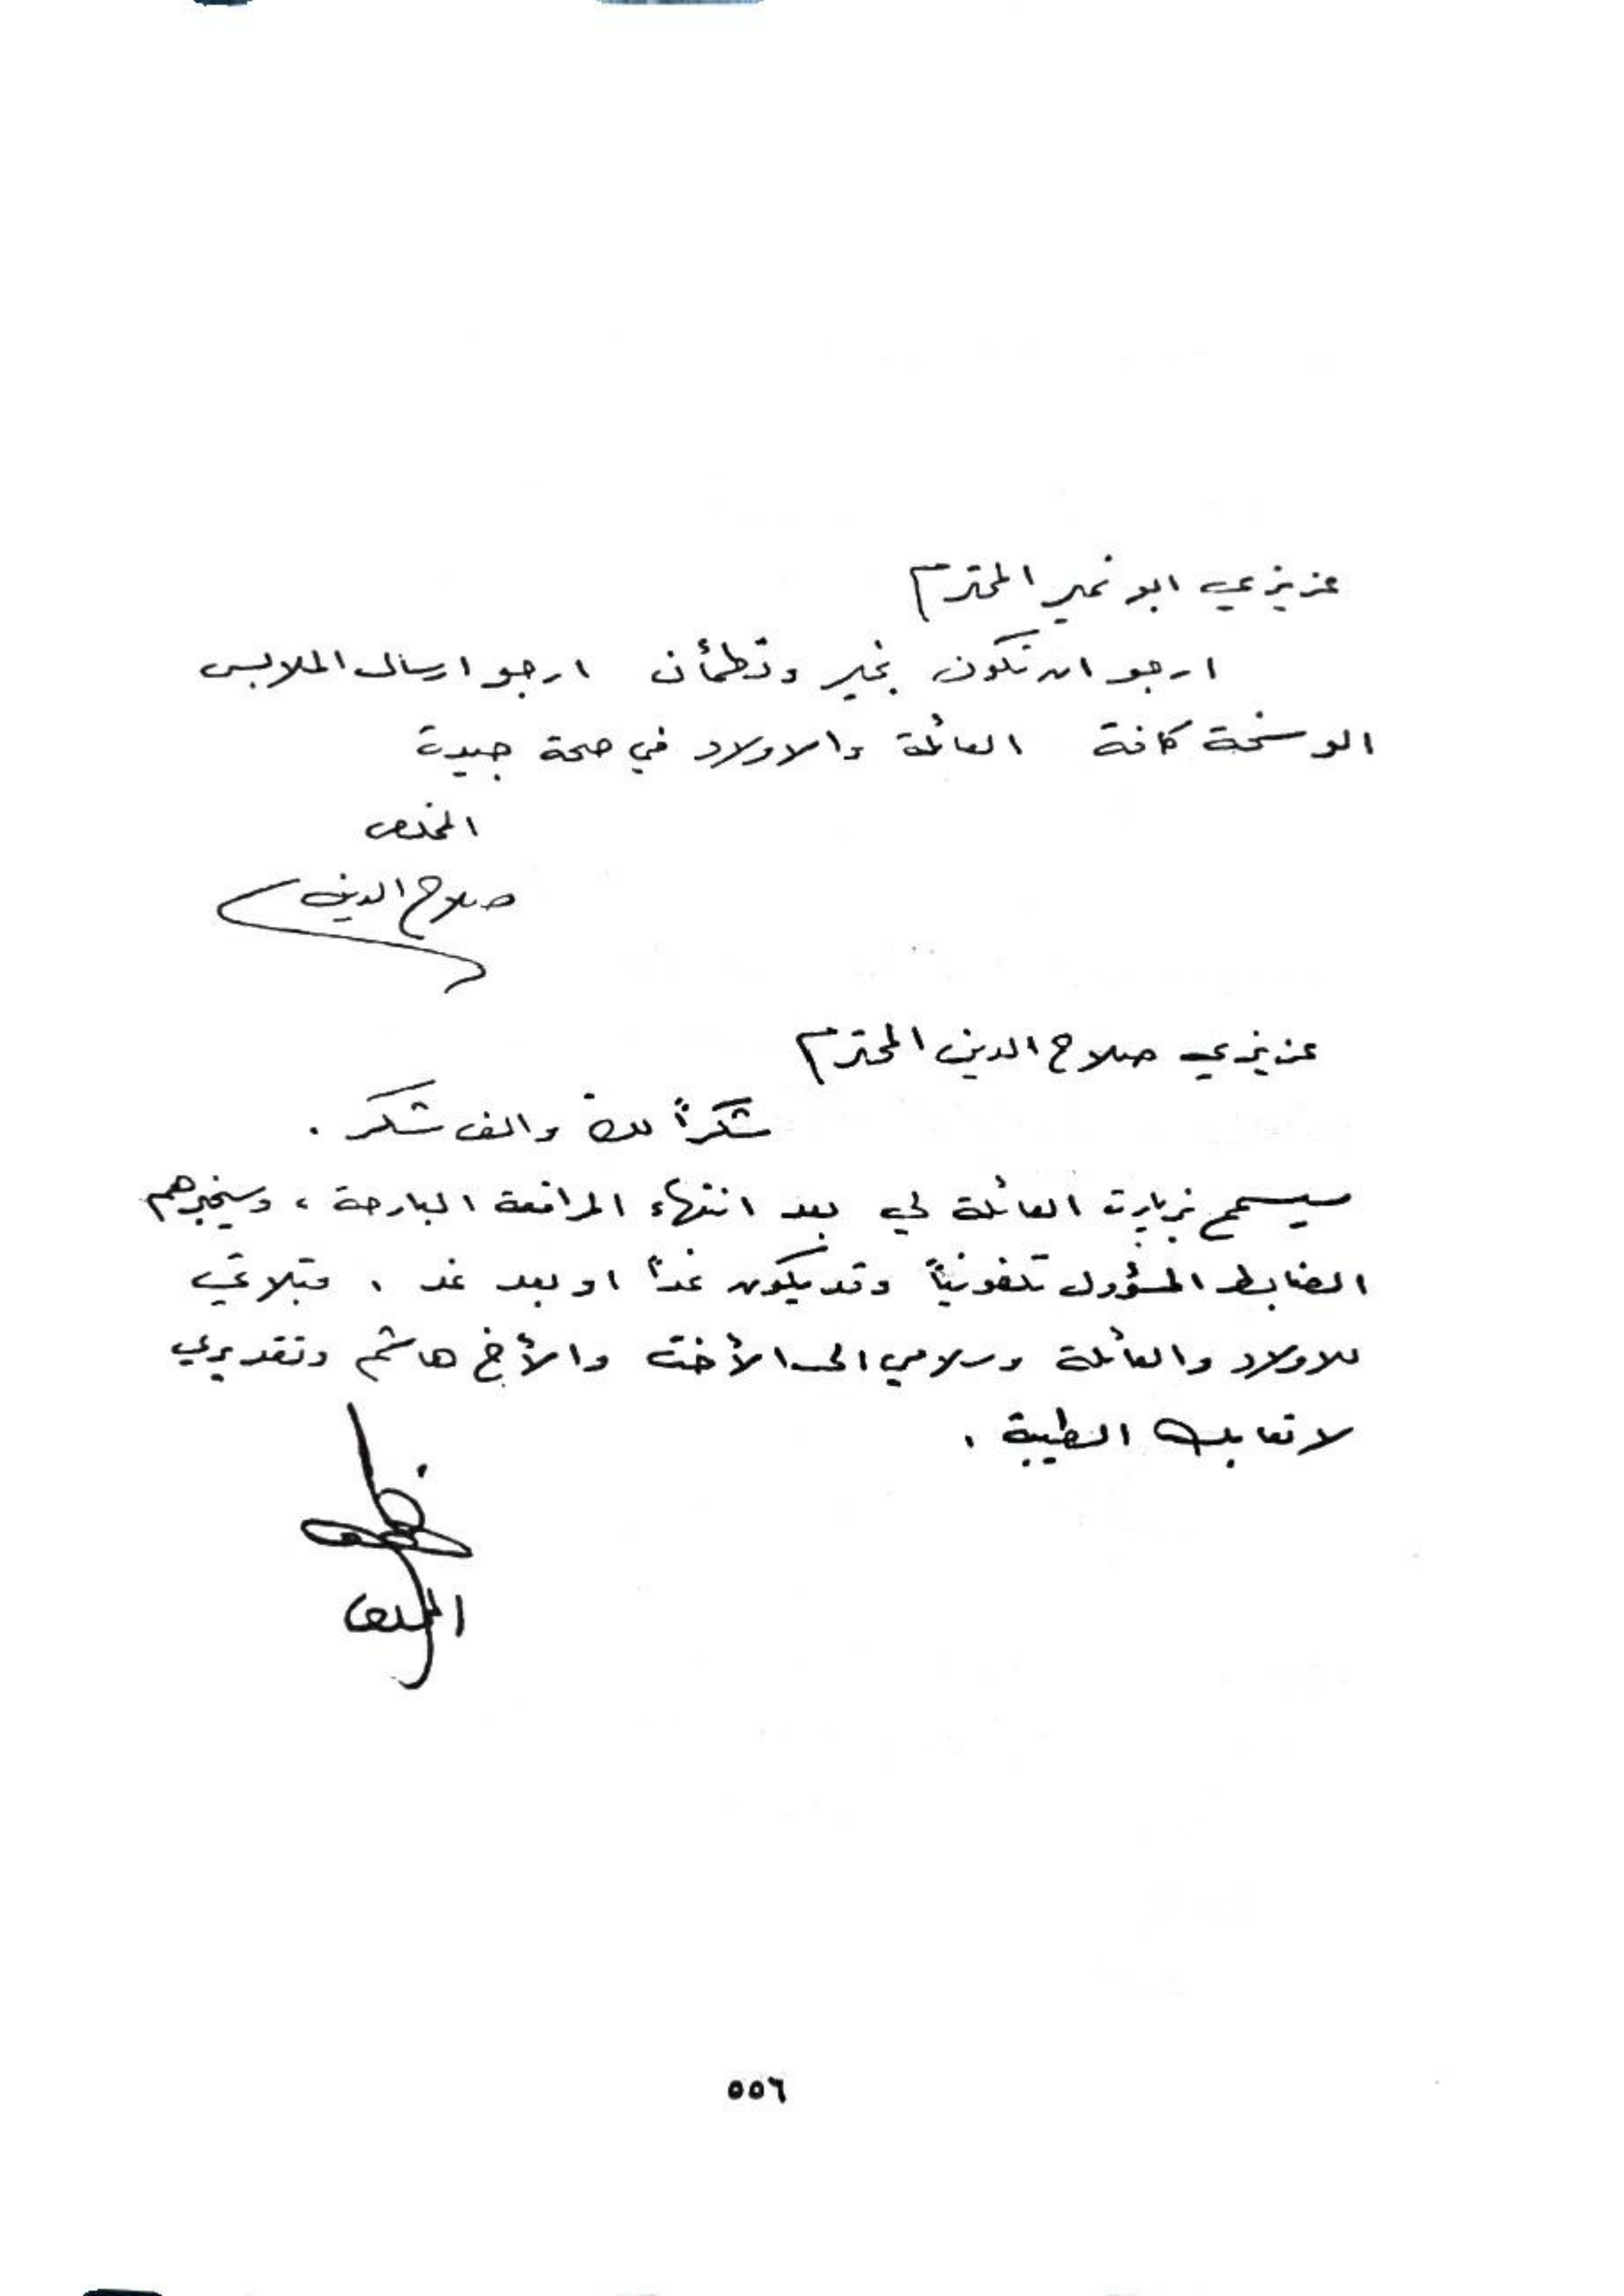 عزيزي ابو نمير المحترم
ارجو ان تكون بخير وتطمأن ارجو ارسال الملابس
الوسخة كافة العائلة والاولاد في صحة جيدة
المخلص
صلاح الدين
عزيزي صلاح الدين المحترم
شكراً لك والف شكر .
سيسمح بزيارة العائلة لي بعد انتهاء المرافعة البارحة ، وسيخبرهم
الضابط المسؤول تلفونياً وقد يكون غداً او بعد غد . قبلاتي
للاولاد والعائلة وسلامي الى الأخت والأخ هاشم وتقديري
لاتعابك الطيبة .
المخلص
٥٥٦